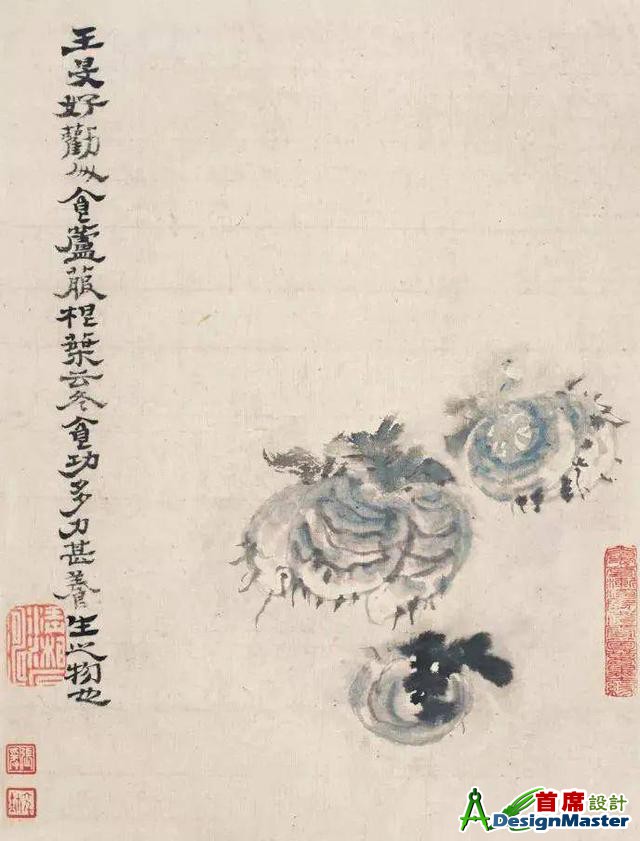 王旻好勸人食蘆菔根葉云冬食功多力甚養生之物也
首席設計
ADesignMaster